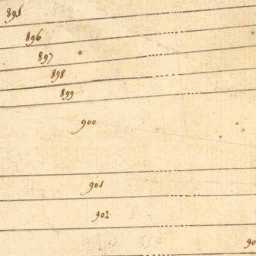 895
896
897
898
899
900
901
902